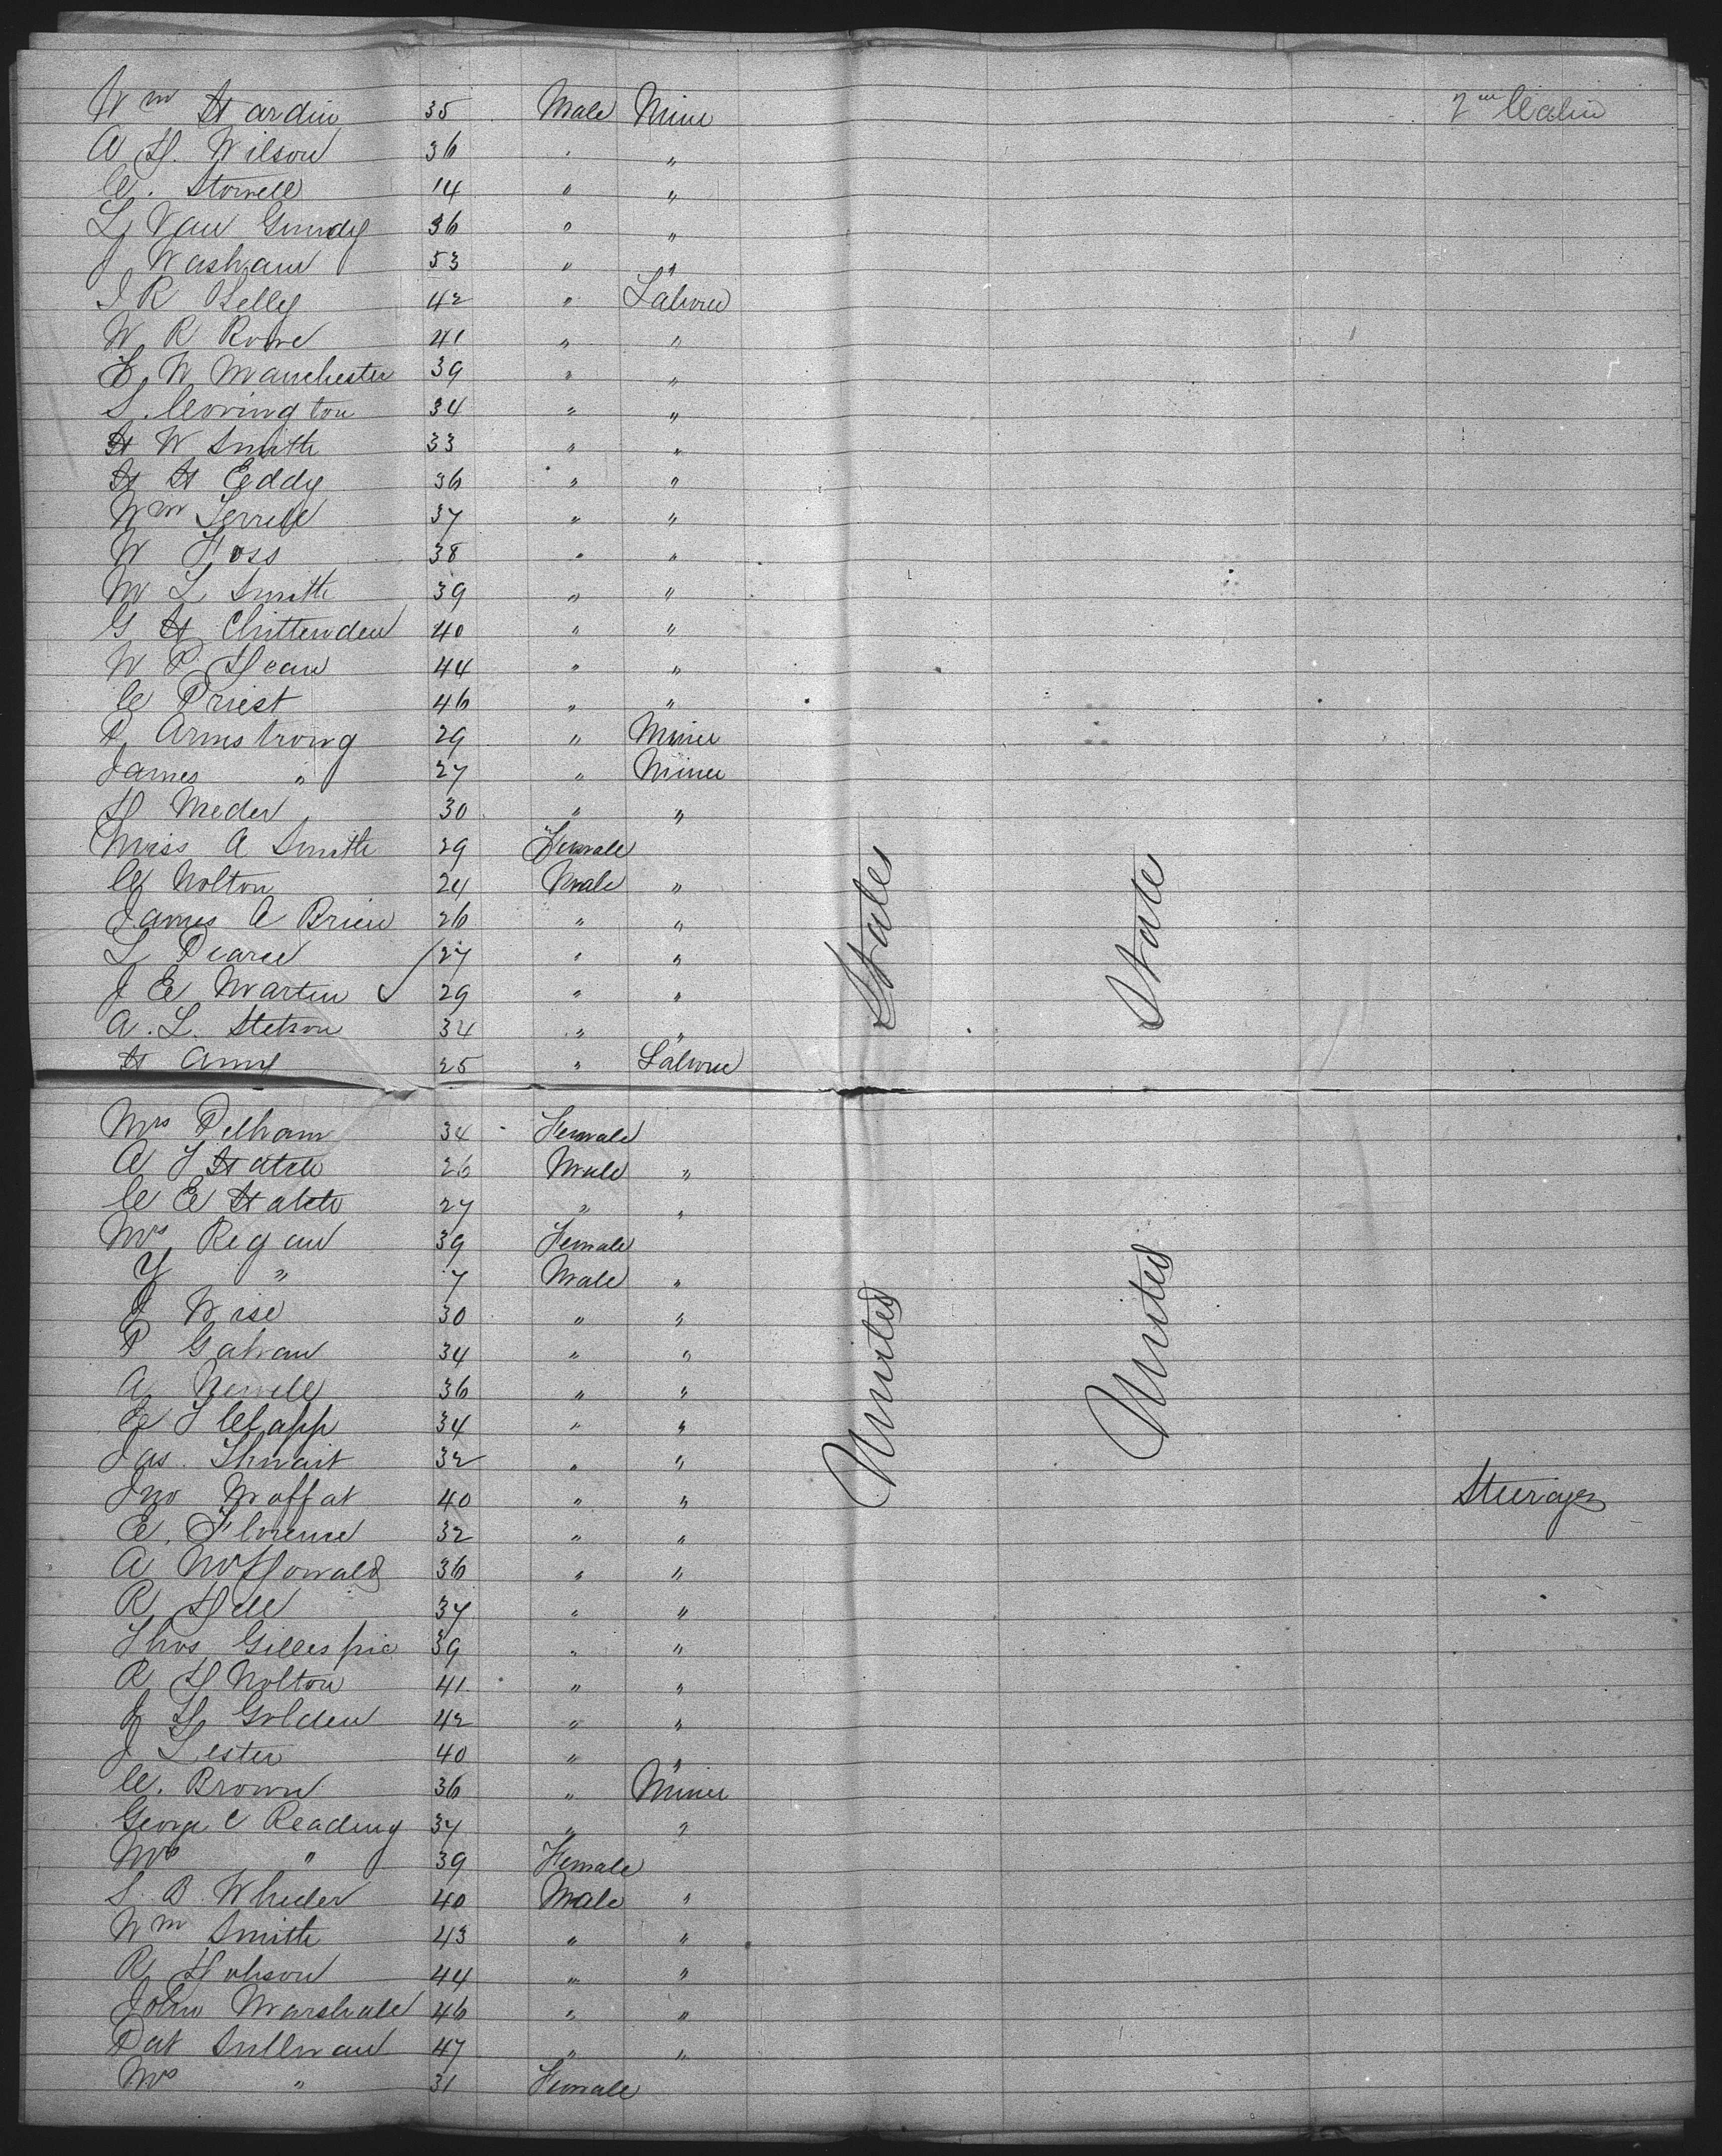 Wm Hardin 35 Male Mine 2nd Cabin
A H. Wilson 36 " "
C. Stowell 14 " "
L Van Gundy 36 " "
J Washam 53 " "
I R Kelly 42 " Laborer
W R Rowe 41 " "
E W Manchester 39 " "
S. Covington 34 " "
H W Smith 33 " "
H H Eddy 36 " "
Wm Terrill 37 " "
W Foss 38 " "
M L Smith 39 " "
G H Chittenden 40 " "
W P Dean 44 " "
C Priest 46 " "
P Armstrong 29 " Miner
James " 27 " Miner
D Meder 30 " "
Miss A Smith 29 Female
C Nolton 24 Male "
James C Brien 26 " "
L Pearce 27 " "
J E Martin 29 " "
A. L. Stetson 34 " "
H Amy 25 " Laborer
Mrs Pelham 34 Female
A J Hatch 26 Male "
C E Hatch 27 " "
Mrs Regan 39 Female
Y " 7 Male "
J Wise 30 " "
P Gahan 34 " "
A Newell 36 " "
E J Clapp 34 " "
Jas. Thwait 32 " "
Jno Moffat 40 " " Steerage
E. Florence 32 " "
A McDonald 36 " "
R Dell 37 " "
Thos Gillespie 39 " "
R D Nolton 41 " "
J D Golden 42 " "
J Lester 40 " "
C. Brown 36 " Miner
George C Reading 37 " "
Mrs " 39 Female
S. B. Wheeler 40 Male "
Wm Smith 43 " "
R Dobson 44 " "
John Marshall 46 " "
Pat Sullivan 47 " "
Mrs " 31 Female
United States
United State